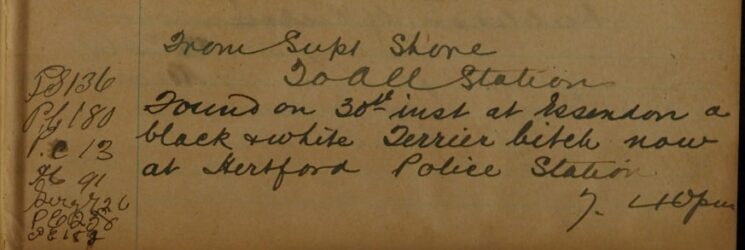 From Supt Shore
To All Station
PS 136
Found on 30th inst at Essendon a
Pc 180
black & white Terrier bitch now
P.c 13
at Hertford Police Station
91
7. 40pm
Serg 726
PC 258